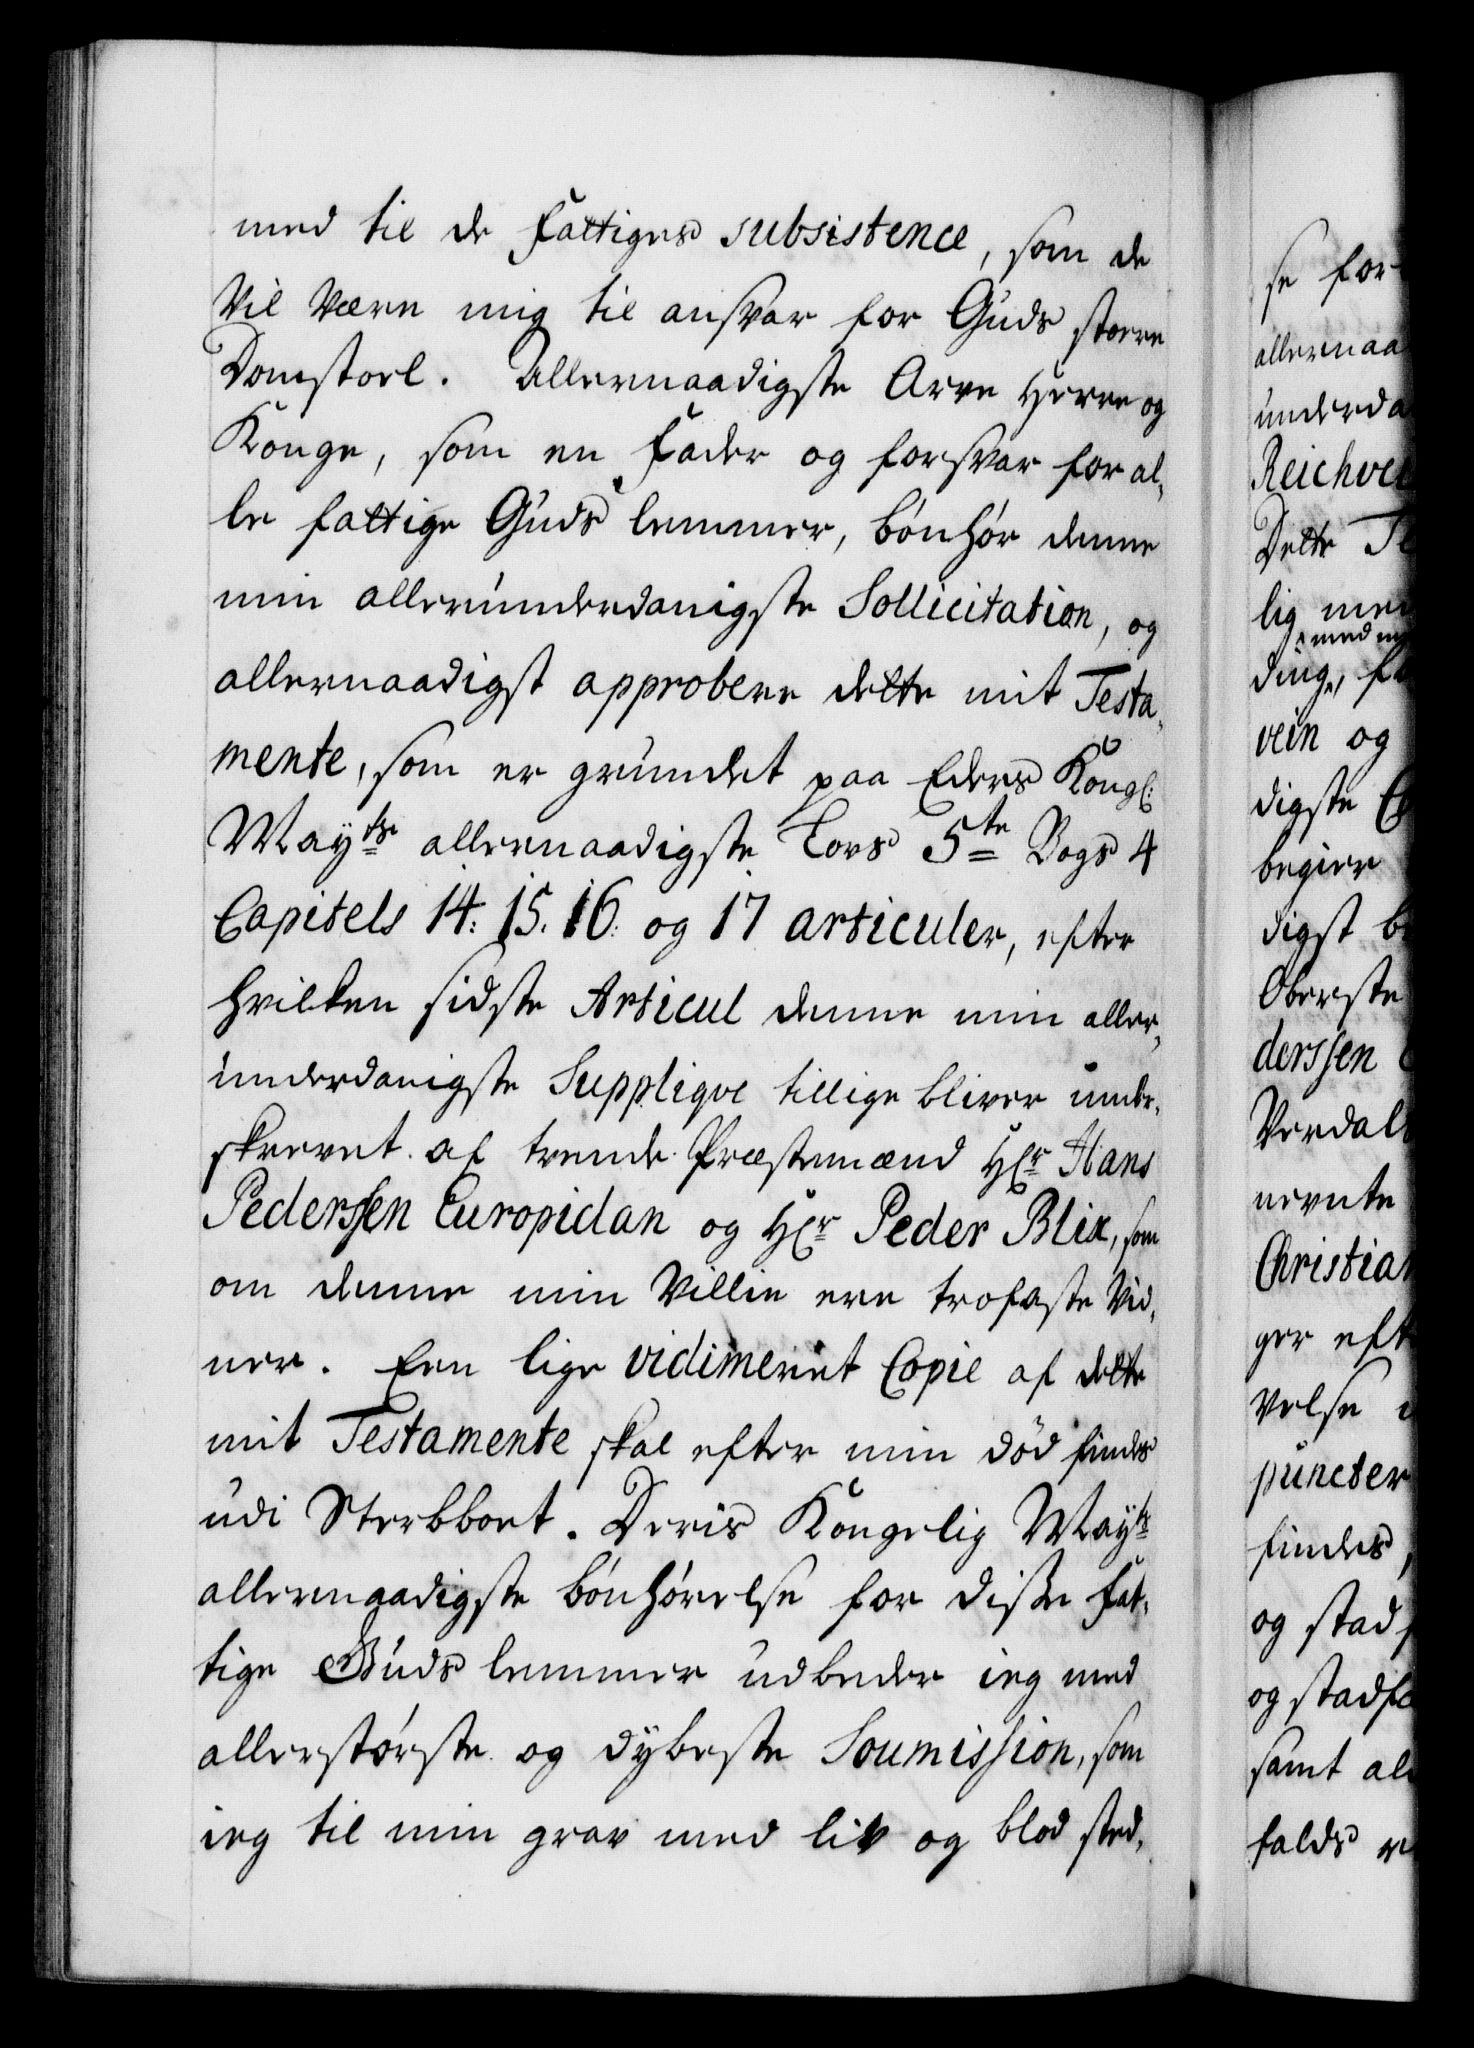 med til de Fattiges subsistence, som de
vil være mig til ansvar for Guds store
Domstoel. Allernaadigste Arve Herre og
Konge, som en Fader og forsvar for al-
le fattige Guds lemmer, bönhör denne
min allerunderdanigste Sollicitation, og
allernaadigst approbere dette mit Testa-
mente, som er grundet paa Eders Kongl:
Mayts allernaadigste Lovs 5te Bogs 4
Capitels 14: 15. 16: og 17 articuler, efter
hvilken sidste Articul denne min aller-
underdanigste Supplique tillige bliver under-
skrevet af trende Præstemænd Hr Hans
Pederssen Europidan og Hr Peder Blix, som
om denne min Villie ere trofaste Vid-
ner. Een lige vidimeret Copie af dette
mit Testamente skal efter min död findes
udi Sterbboet. Deris Kongelig Mayts
allernaadigste bönhörelse for disse Fat-
tige Guds lemmer udbeder ieg med
allerstörste og dybeste Soumission, som
ieg til min grav med liv og blod sted-
se for
allernaa
underda
Reichve
Dette Te
lig men
med
ding, f
vein og
digste
begier
digst b
Oberste
derssen
Verdal
nevnte
Christian
ger eft
velse
puncter
findes,
og stadf
og stadfæ
samt al
falds